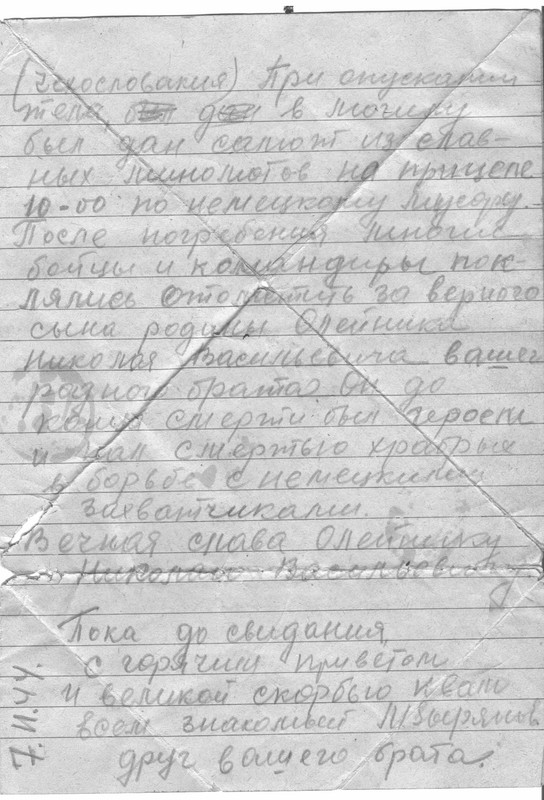 (Чехословакия) При опускании
тела в могилу
был дан салют из слав-
ных минометов на прицеле
10-00 по немецкому мусору.
После погребения многие
бойцы и командиры пок-
лялись отомстить за верного
сына родины Олейника
Николая Васильевича вашего
родного брата. Он до
конца смерти был героем
и пал смертью храбрых
в борьбе с немецкими
захватчиками.
Вечная слава Олейнику
Николаю Васильевич
Пока до свидания,
с горячим приветом
и великой скорбью к вам
всем знакомый М Зырянов
друг вашего брата.
7.11.44.